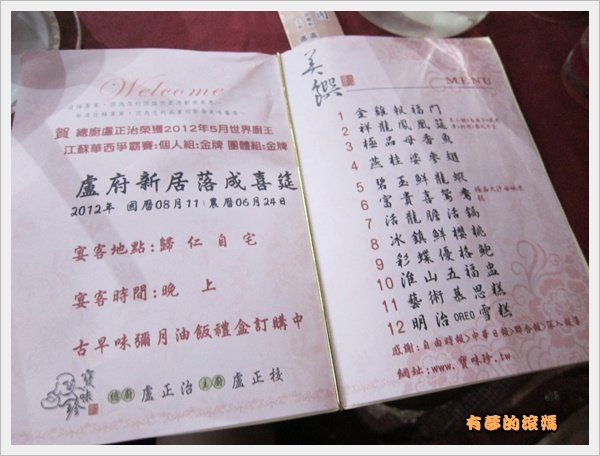 Welcome
賀 總廚盧正治榮獲2012年5月世界廚王
江蘇華西爭霸賽:個人組:金牌 團體組:金牌
盧府新居落成喜筵
2012年 國曆08月11|農曆06月24日
宴客地點:歸 仁 自 宅
宴客時間:晚 上
古早味彌月油飯禮盒訂購中
寶味珍
總廚 盧正治 主廚 盧正枝
美饌
MENU
1 金雞報福門
2 祥龍鳳凰筵
3 極品母香魚
4 燕桂婆參翅
5 碧玉鮮龍蝦
6 富貴喜鴛鴦
7 活龍膽活鍋
8 冰鎮鮮櫻桃
9 彩蝶優格鮑
10 淮山五福盅
11 藝術慕思糕
12 明治OREO雪糕
感謝:自由時報>中華日報>聯合報>深入報導
網址:www.寶味珍.tw
有夢的滾媽